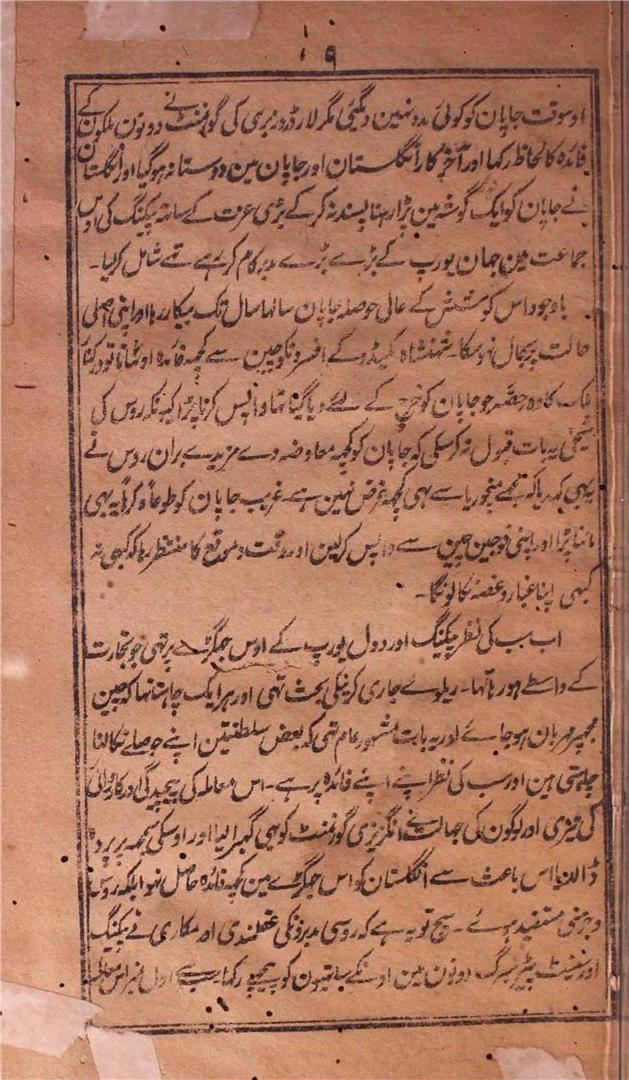 ۹
اوسوقت جاپان کو کوئی مدد نہین دیگیٔی مگر لارڈ روزبری کی گورنمنٹ نے دونون ملکون کے
فائدہ کا لحاظ رکہا اور آخر کار انگلستان اور جاپان مین دوستانہ ہوگیا اور انگلستان
نے جاپان کو ایک گوشہ مین پڑا رہنا پسند نہ کر کے بڑی عزت کے ساتہ پیکنگ کی اوس
جماعت مین جہان یورپ کے بڑے بڑے مدبر کام کر رہے تہے شامل کرلیا۔
باوجود اس کوشش کے عالی حوصلہ جاپان سالہا سال تک بیکار رہا اور اپنی اصلی
حالت پر بحال نہوسکا۔ شہنشاہ میکیڈو کے افسرونکو چین سے کچہ فائدہ اوٹہانا تو درکنار
ملک کا وہ حصّہ جو جاپان کو خرچ کے لئے دیا گیا تہا واپس کرنا پڑا کیونکہ روس کی
شیخی یہ بات قبول نہ کر سکی کہ جاپان کو کچہ معاوضہ دے مزید بران روس نے
یہ بہی کہدیا کہ مجہے منچوریا سے بہی کچہ غرض نہین ہے۔ غریب جاپان کو طوعاً و کرہاً یہ بہی
ماننا پڑا اور اپنی فوجین چین سے واپس کرلین اور وقت و موقع کا منتظر رہا کہ کبہی نہ
کبہی اپنا غبار و غصّہ نکالونگا۔
اب سب کی نظر پیکنگ اور دول یورپ کے اوس جہگڑے پر تہی جو تجارت
کے واسطے ہو رہا تہا۔ ریلوے جاری کرنیکی بحث تہی اور ہر ایک چاہتا تہا کہ چین
مجہپر مہربان ہو جائے اور یہ بات مشہور عام تہی کہ بعض سلطنتین اپنے حوصلے نکالنا
چاہتی ہین اور سب کی نظر اپنے اپنے فائدہ پر ہے۔ اس معاملہ کی پیچیدگی اور کارروائی
کی تیزی اور لوگون کی جہالت نے انگریزی گورنمنٹ کو بہی گہبرا لیا اور اوسکی سمجہ پر پردہ
ڈالدیا اس باعث سے انگلستان کو اس جہگڑے مین کچہ فائدہ حاصل نہوا بلکہ روس
و جرمنی مستفید ہوئے۔ سچ تو یہ ہے کہ روسی مدبرونکی عقلمندی اور مکاری نے پیکنگ
اور سینٹ پیٹرسبرگ دونون مین اونکے ساتہیون کو پیچہے رکہا سب سے اول نمبر اس معاملہ